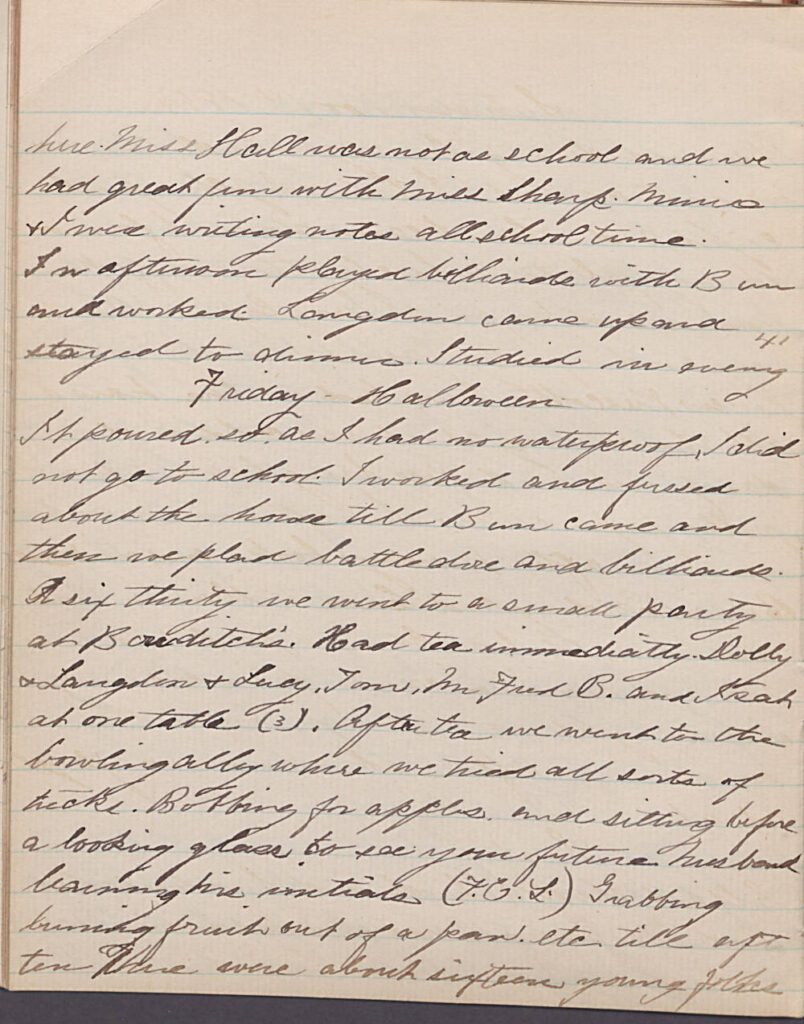 here. Miss Hall was not as school and we
had great fun with Miss Sharp. Minie
& I were writing notes all school time.
In afternoon played billiards with Bun
and worked. Langdon came up and
stayed to dinner. Studied in evening
Friday - Halloween
It poured so as I had no waterproof, I did
not go to school. I worked and fussed
about the house till Bun came and
then we plad battledoe and billiards.
A six thirty we went to a small party
at Bowditch's. Had tea immediatly. Dolly
& Langdon & Lucy, Tom, M, Fred B. and I sat
at one table (3). After tea we went to the
bowling ally where we tried all sorts of
tricks. Bobbing for apples and sitting before
a looking glass to see your future husband
burning his initials (F.C.L.) Grabbing
burning fruit out of a pan. etc. till aft
ten There were about sixteen young folks